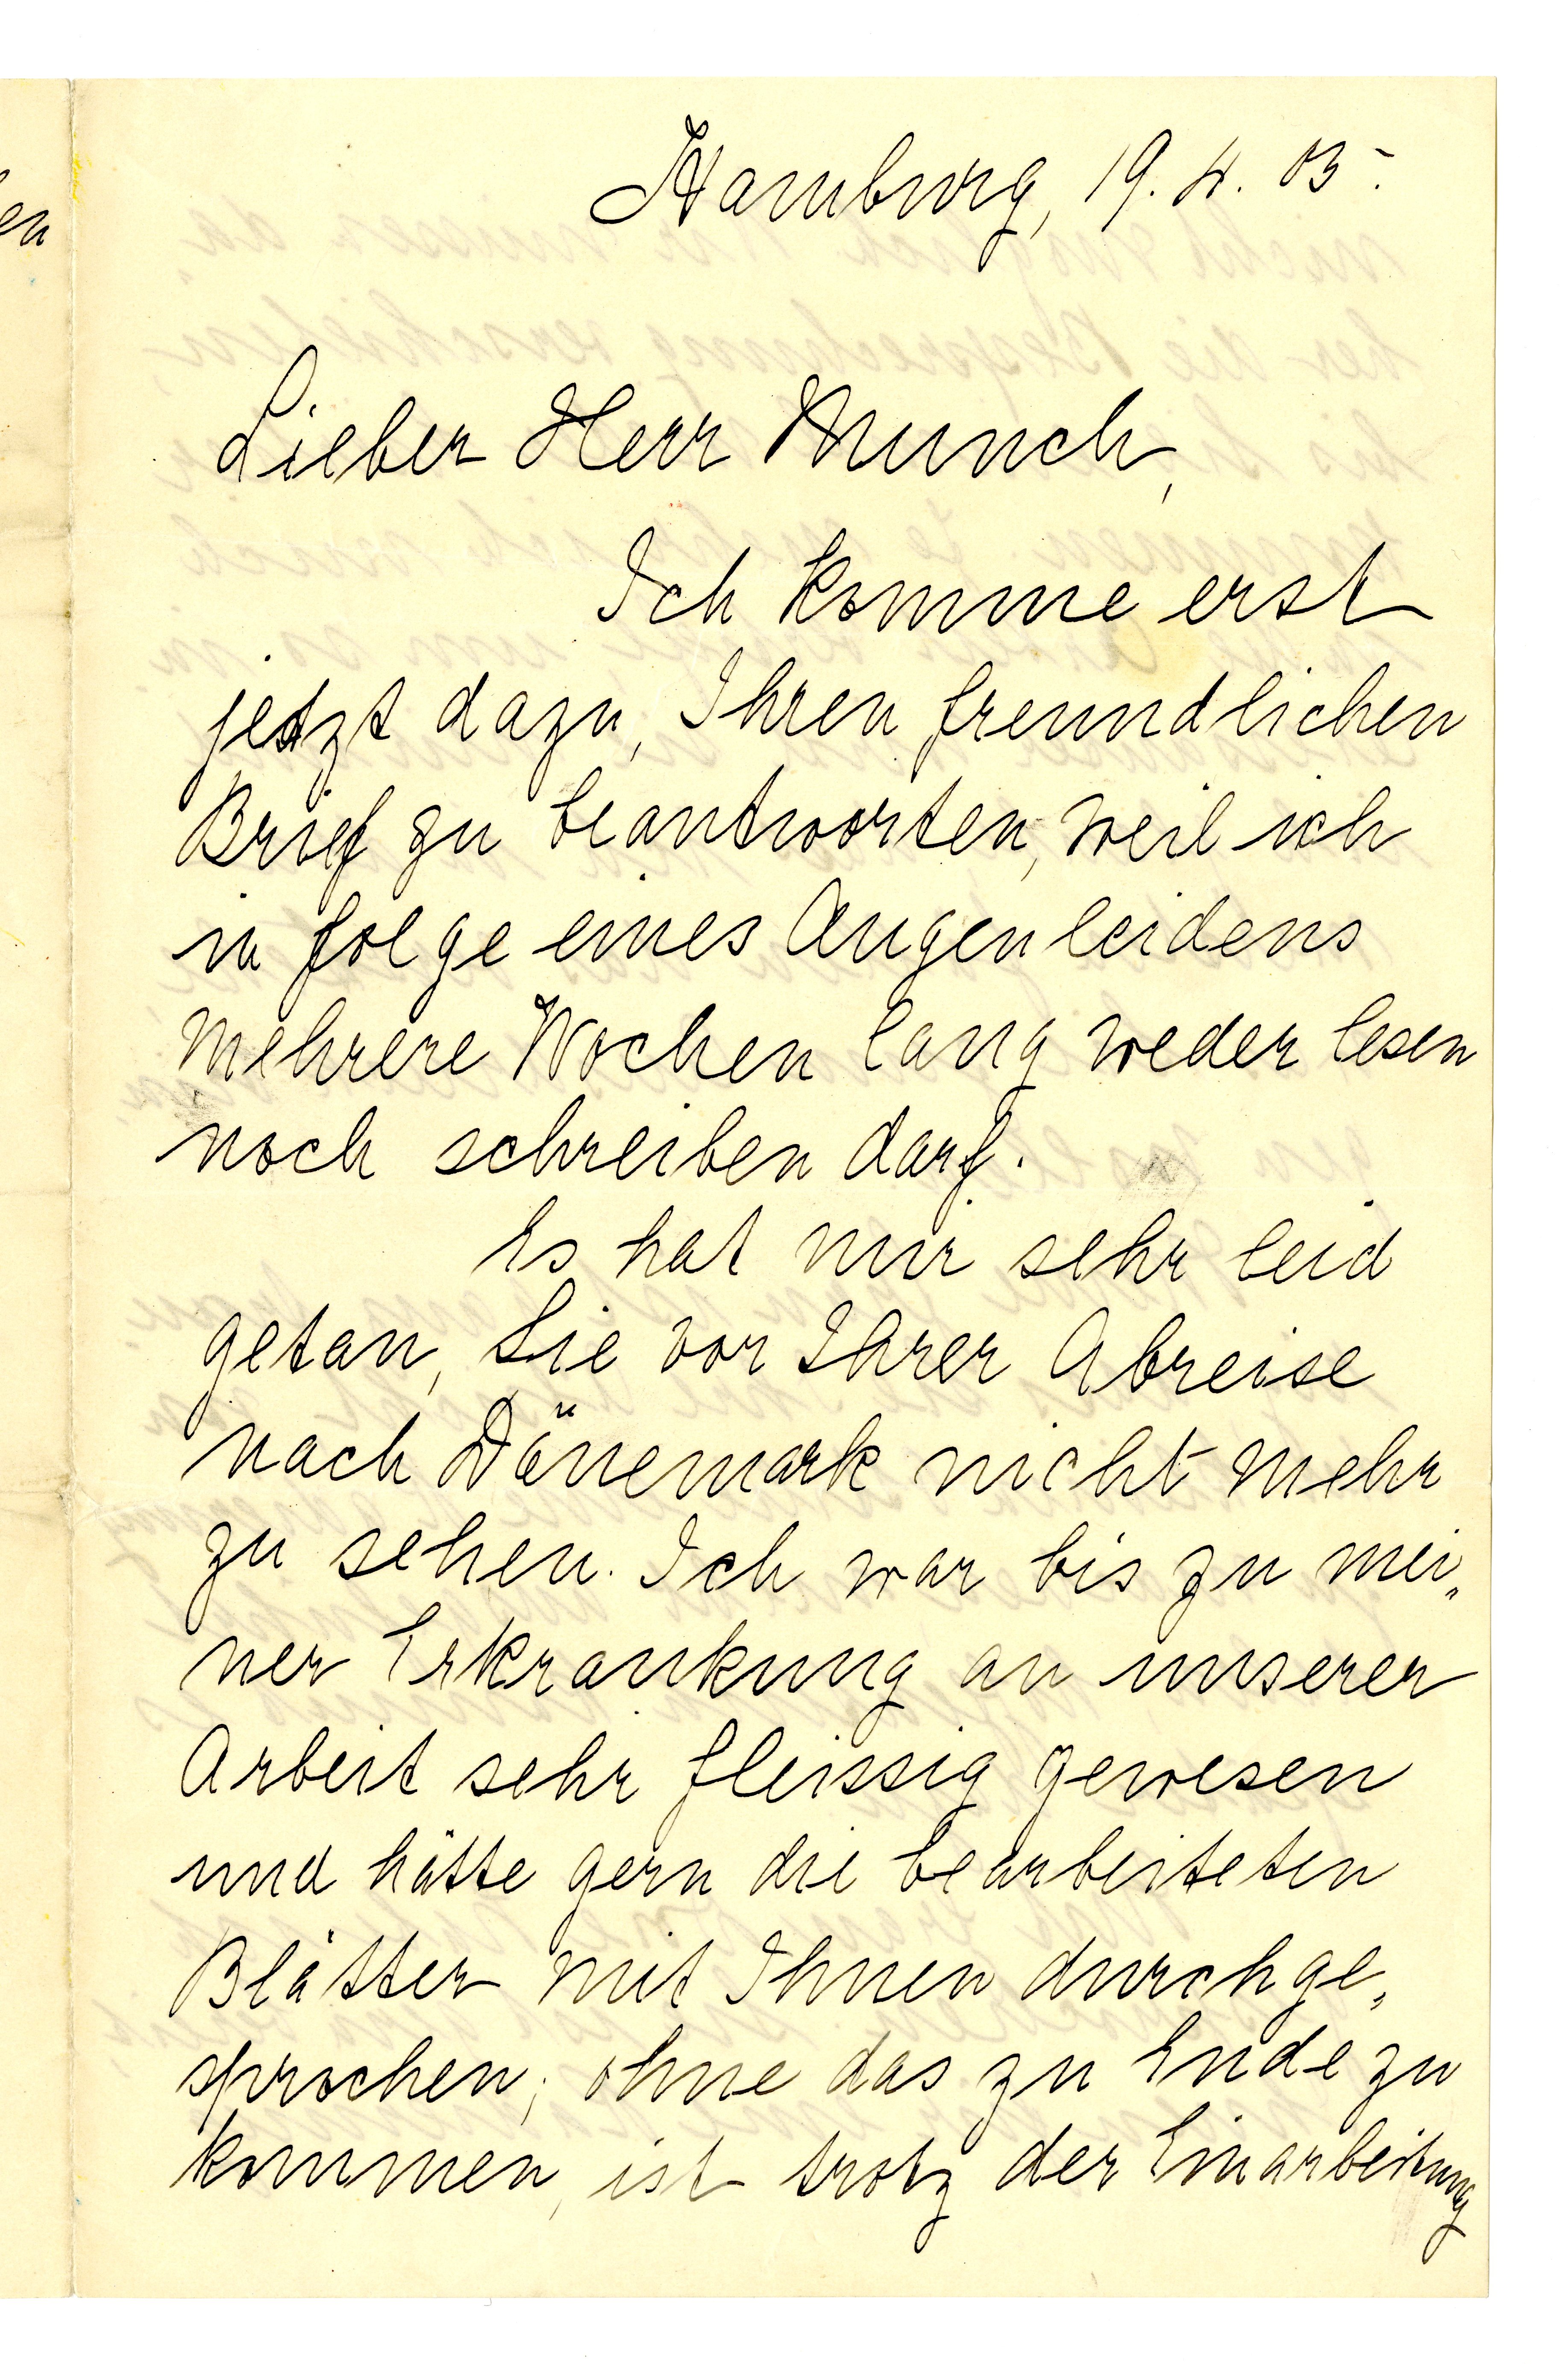 Hamburg, 19. 4. 05.
Lieber Herr Munch,
Ich komme erst
jetzt dazu, Ihren freundlichen
Brief zu beantworten, weil ich
in folge eines Augenleidens
mehrere Wochen lang weder lesen
noch schreiben darf.
Es hat mir sehr leid
getan, Sie vor Ihrer Abreise
nach Dänemark nicht mehr
zu sehen. Ich war bis zu mei„
ner Erkrankung an unserer
Arbeit sehr fleissig gewesen
und hätte gern die bearbeiteten
Blätter mit Ihnen durchge„
sprochen; ohne das zu Ende zu
kommen, ist trotz der Einarbeitung
en